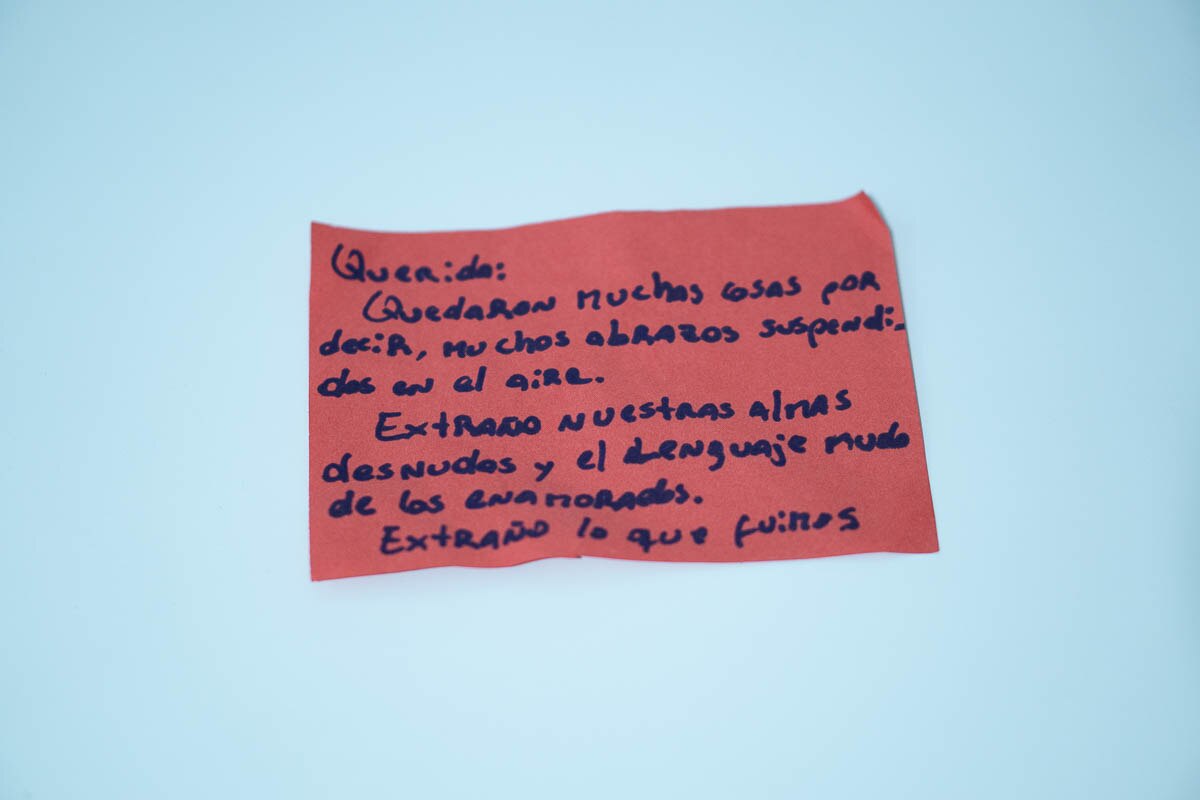 Querido:
Quedaron muchas cosas por
decir, muchos abrazos suspendi-
dos en el aire.
Extraño nuestras almas
desnudas y el lenguaje mudo
de los enamorados.
Extraño lo que fuimos